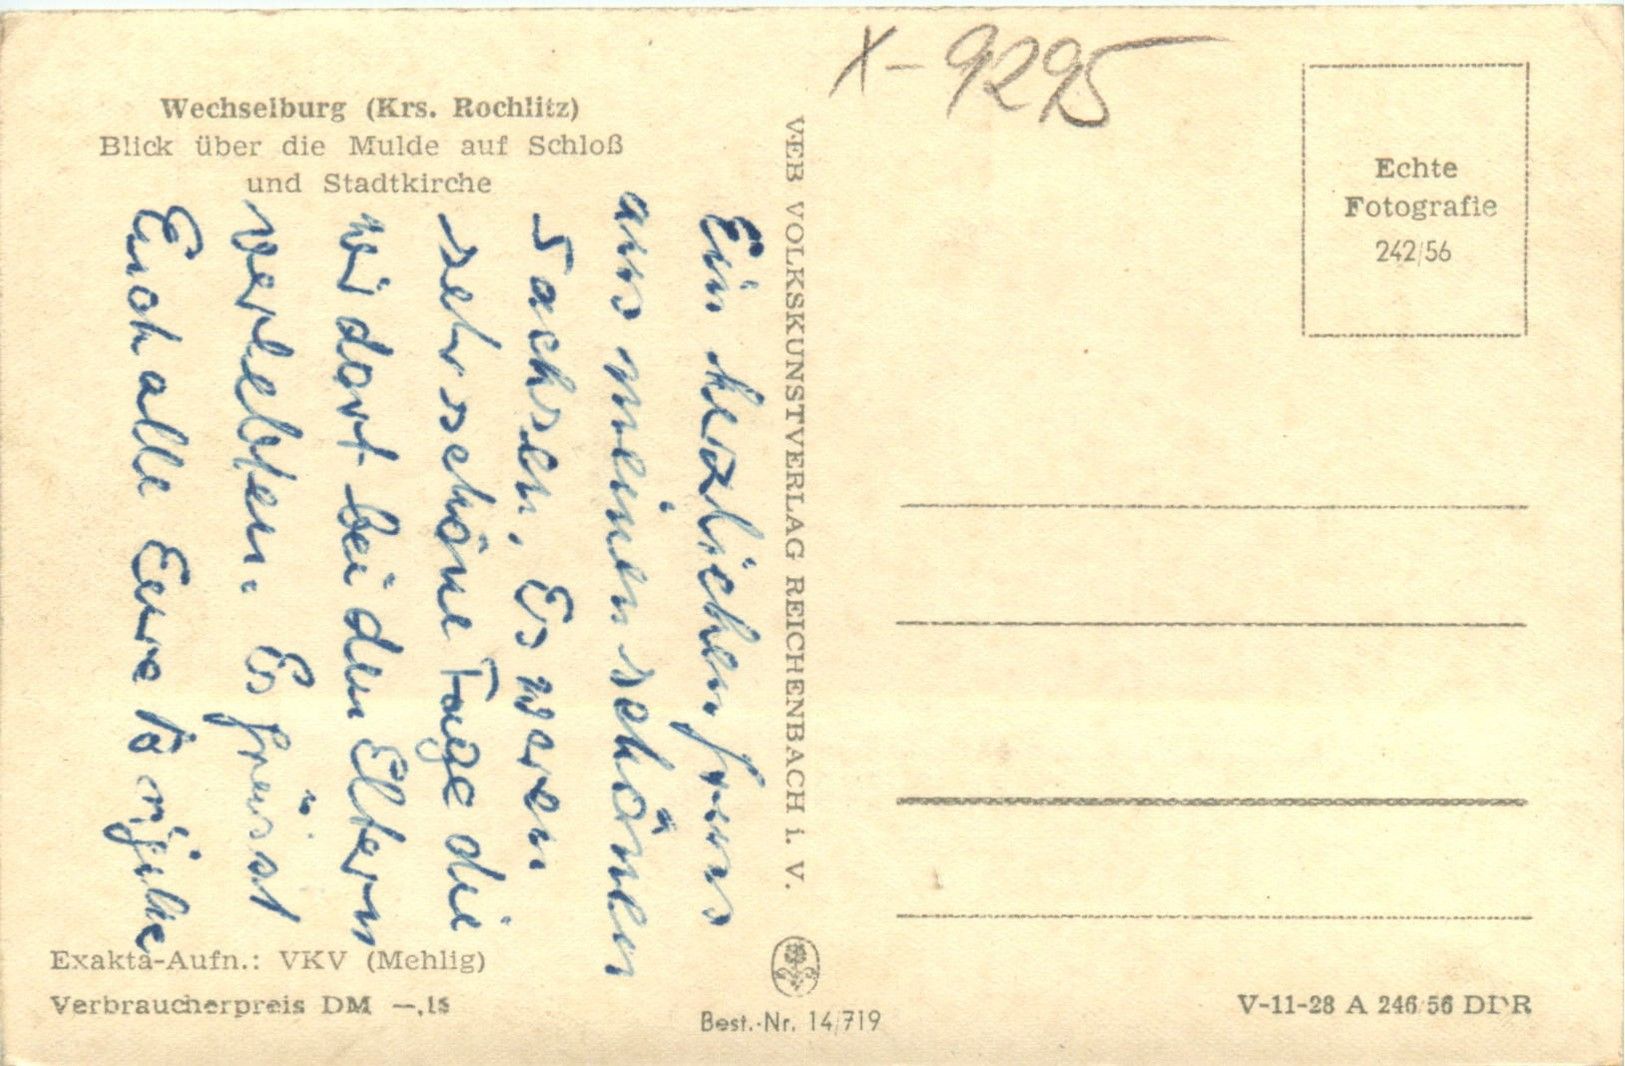 X-9295
Wechselburg (Krs. Rochlitz)
Blick über die Mulde auf Schloß
und Stadtkirche
Echte
Fotografie
242/56
VEB VOLKSKUNSTVERLAG REICHENBACH i. V.
Ein herzlichen gruss
aus meinen schönen
Sachsen, Es waren
sehr schöne Tage die
wir dort bei den Eltern
verlebten. Es grüsst
Euch alle Eure
Exakta-Aufn.: VKV (Mehlig)
Verbraucherpreis DM —,15
Best.-Nr. 14/719
V-11-28 A 246/56 DDR